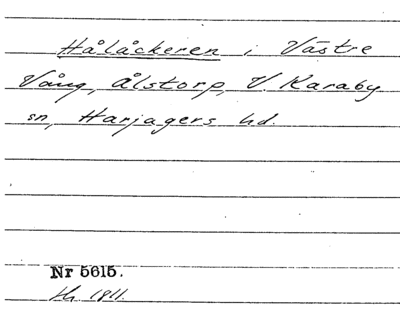 Hålåckeren i Västre
Vång, Ålstorp, V. Karaby
sn, Harjagers hd.
Nr 5615.
1811.